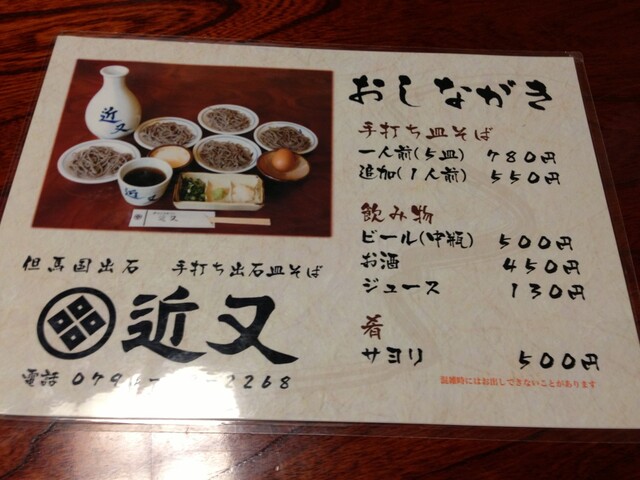 おしながき
手打ち皿そば
一人前(5皿) 780円
追加(1人前) 550円
飲み物
ビール(中瓶) 500円
お酒 450円
ジュース 130円
肴
サヨリ 500円
混雑時にはお出しできないことがあります
近又
近又
近又
但馬国出石 手打ち出石皿そば
近又
電話 079 2268